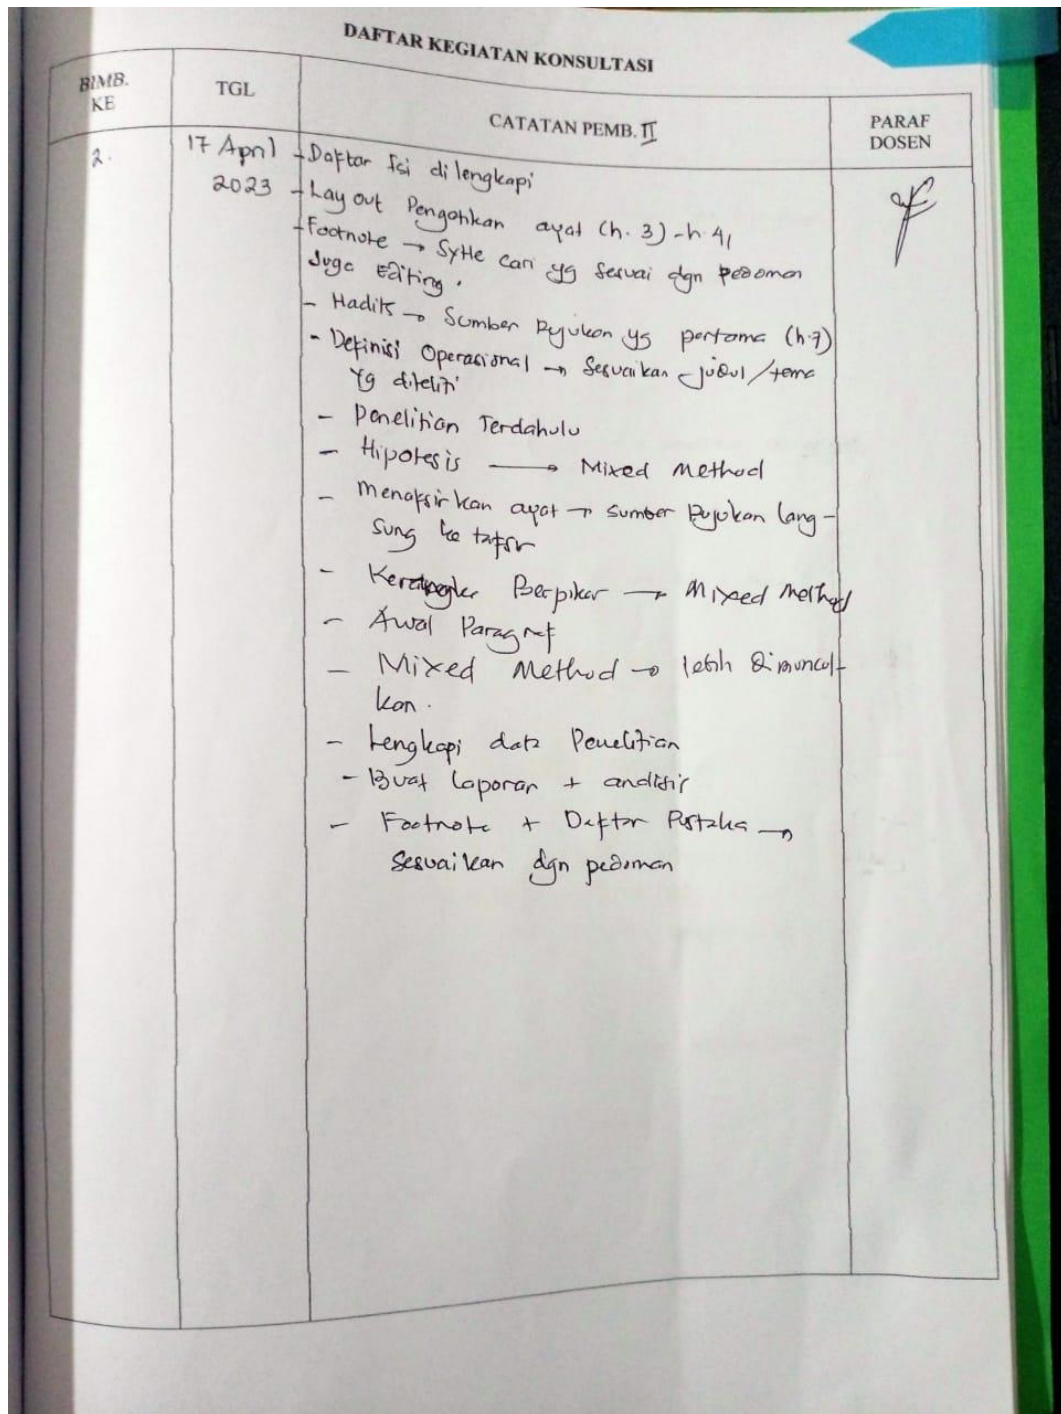 DAFTAR KEGIATAN KONSULTASI
BIMB.
KE
TGL
CATATAN PEMB. II
PARAF
DOSEN
2.
17 April
2023
- Daftar Isi di lengkapi
- Lay out Pengetikan ayat (h. 3) - h. 4,
- Footnote → Sytle cari yg sesuai dgn pedoman
Juga Editing.
- Hadits → Sumber Rujukan yg pertama (h.7)
- Definisi Operasional → Sesuaikan judul/tema
Yg diteliti
- Penelitian Terdahulu
- Hipotesis → Mixed Method
- Menafsirkan ayat → sumber Rujukan lang-
sung ke tafsir
- Kerangka Berpikir → Mixed Method
- Awal Paragraf
- Mixed Method → lebih dimuncul-
kan.
- Lengkapi data Penelitian
- Buat laporan + analisis
- Footnote + Daftar Pustaka →
Sesuaikan dgn pedoman